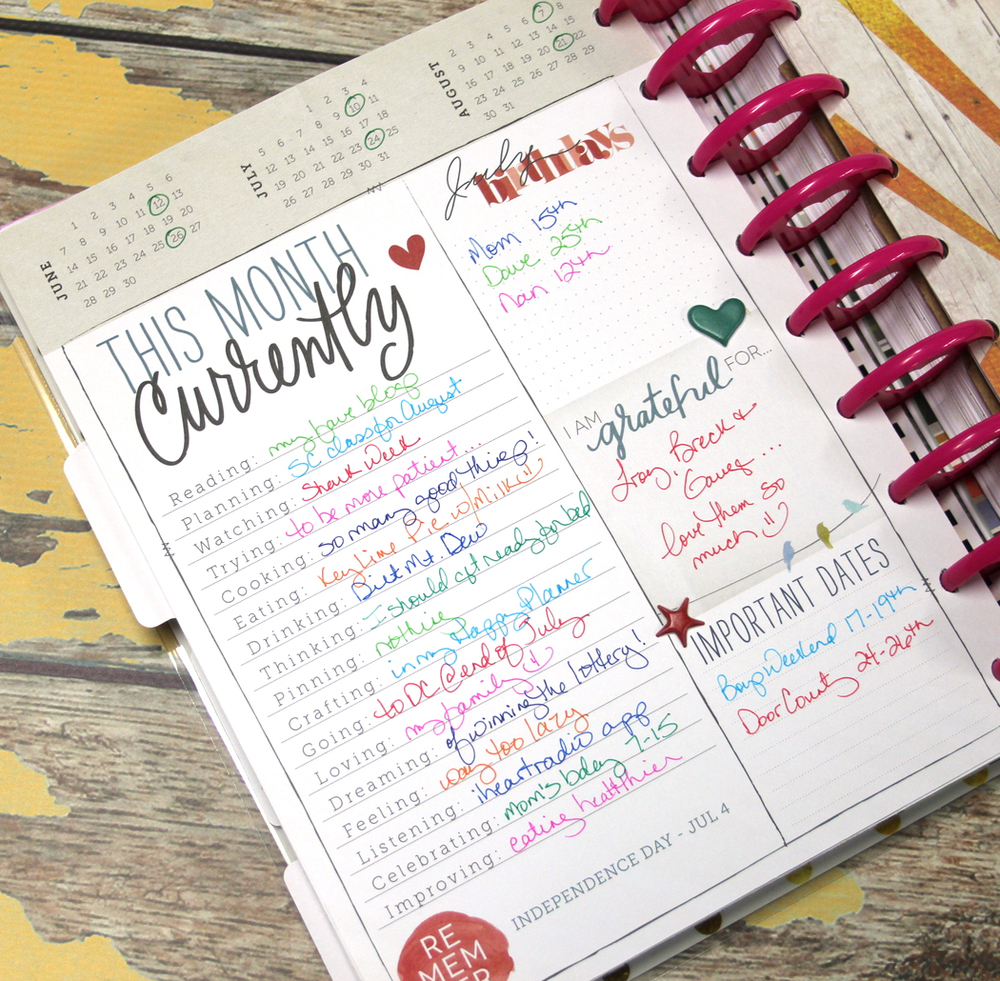 JUNE
1 2 3 4 5 6
7 8 9 10 11 12 13
14 15 16 17 18 19 20
21 22 23 24 25 26 27
28 29 30
JULY
1 2 3 4
5 6 7 8 9 10 11
12 13 14 15 16 17 18
19 20 21 22 23 24 25
26 27 28 29 30 31
AUGUST
2 3 4 5 6 7 8
9 10 11 12 13 14 15
16 17 18 19 20 21 22
23 24 25 26 27 28 29
30 31
THIS MONTH
Currently
Reading: my fave blogs
Planning: SC class for August
Watching: Shark Week
Trying: to be more patient...
Cooking: so many good things!
Eating: Key lime Pie w/ Milk
Drinking: Diet Mt Dew
Thinking: I should get ready for bed
Pinning: nothing
Crafting: in my Happy Planner
Going: to DC @ end of July
Loving: my family
Dreaming: of winning the lottery!
Feeling: way too lazy
Listening: iheartradio app
Celebrating: mom's bday 7-15
Improving: eating healthier
INDEPENDENCE DAY - JUL 4
RE
MEM
July birthdays
Mom 15th
Dave 25th
Nan 12th
I AM grateful FOR...
Troy, Breck &
Gaweg ...
love them so
much
IMPORTANT DATES
Boys Weekend 17-19th
Door County 24-26th